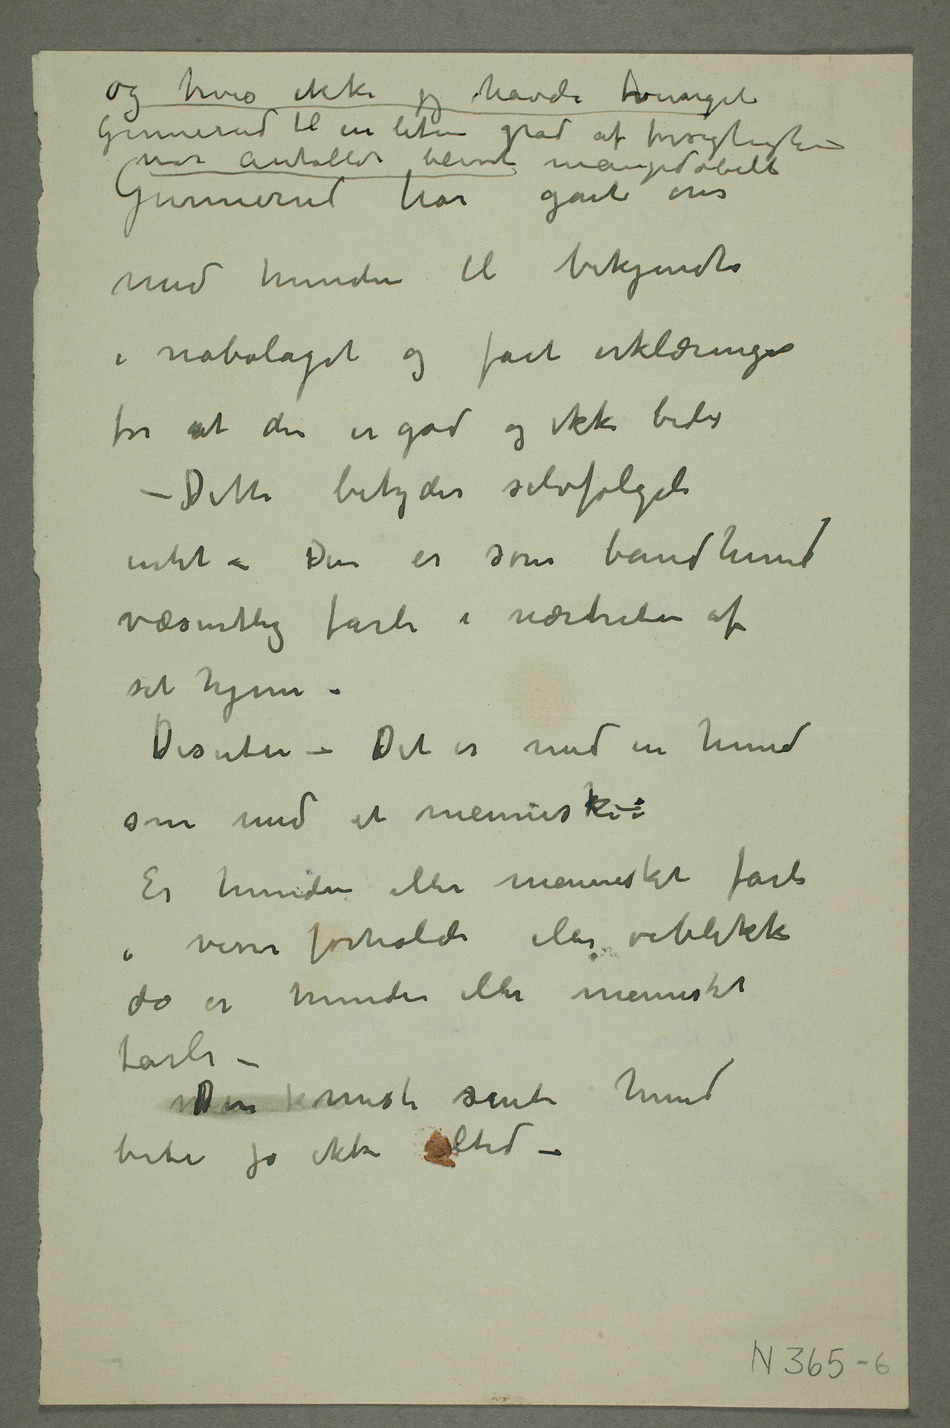 og hvis ikke jeg havde tvunget
Gunnerud til en liten grad af forsigtighe
var antallet blevet mangedobelt
Gunnerud har gået om
med hunden til bekjendte
i nabolaget og fåt erklæringer
for at den er god og ikke bider
– Dette betyder selvfølgeli
intet – Den er som bandhund
væsentlig farli i nærheten af
sit hjem –
Desuten – Det er med en hund
som med et menneske:
Er hunden eller mennesket farli
i visse forholde eller øieblikke
da er hunden eller mennesket
farli –
Den mest sinte hund
biter jo ikke altid –
N 365-6